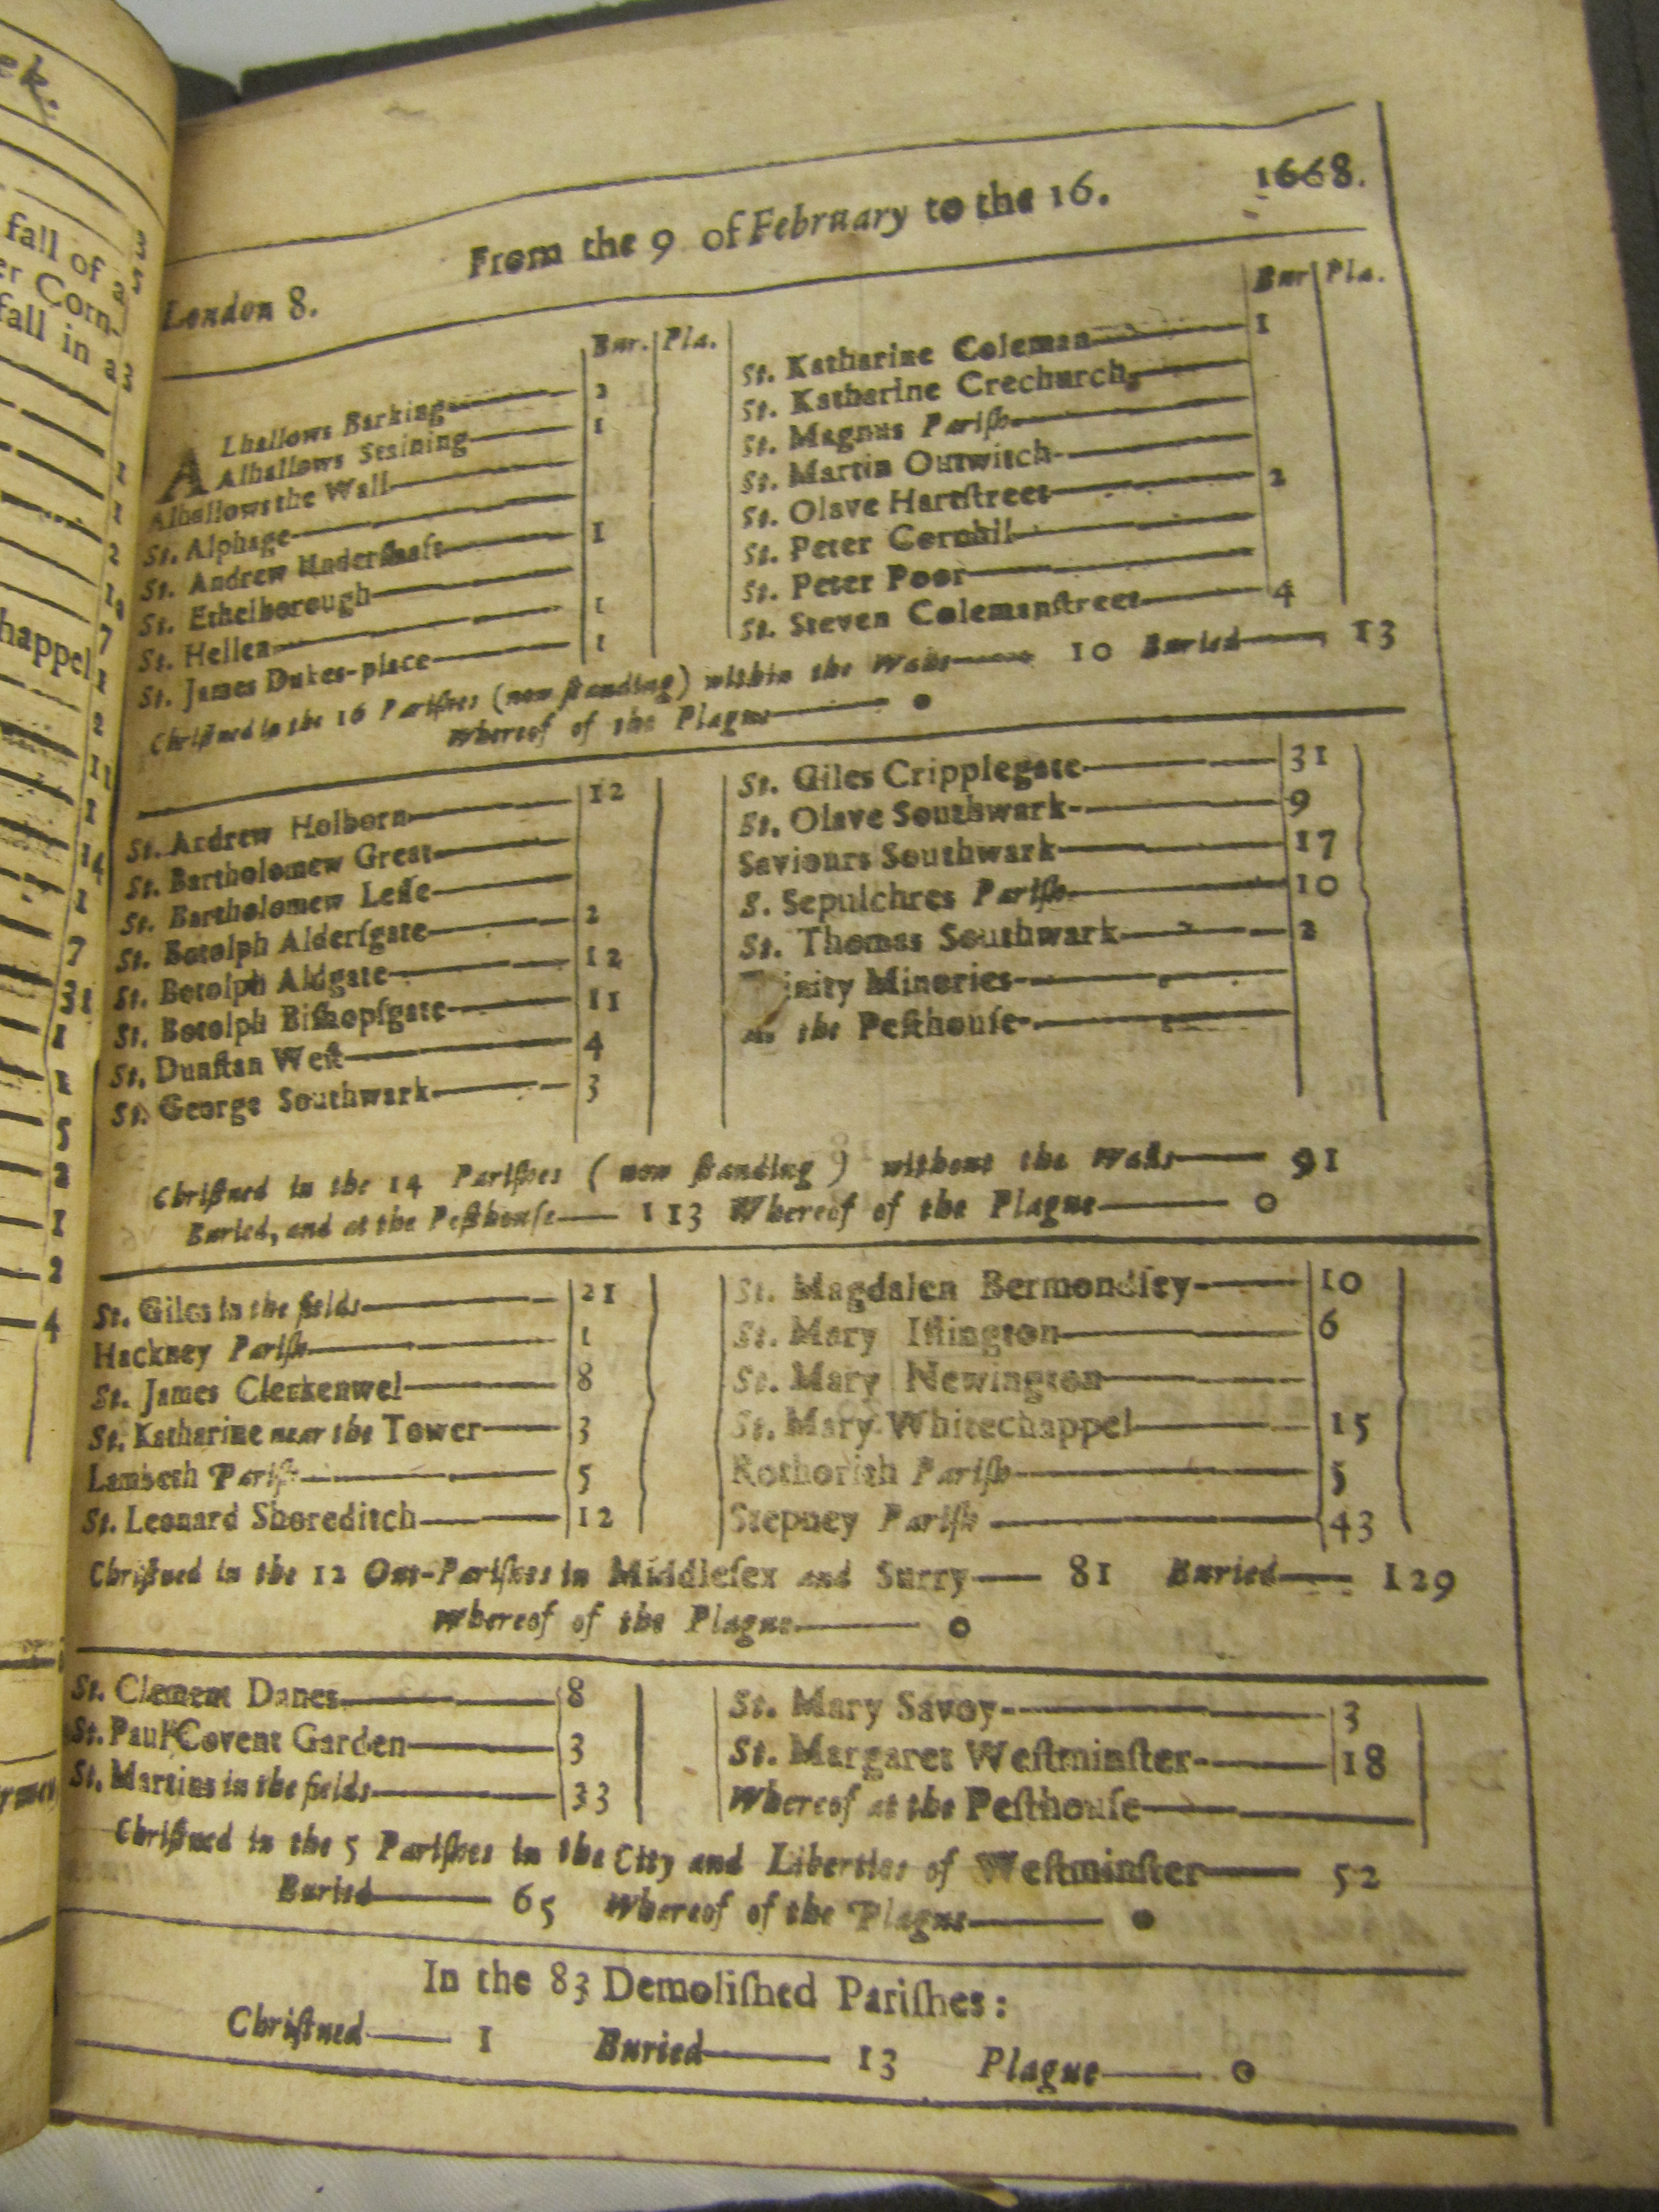 ek.
fall of a
er Corn-
fall in a
happel
From the 9 of February to the 16. 1668.
London 8.
Bur. Pla.
ALhallows Barking 2
Alhallows Staining 1
Alhallows the Wall
St. Alphage
St. Andrew Underſhaft 1
St. Ethelborough
St. Hellen 1
St. James Dukes-place 1
Bur Pla.
St. Katharine Coleman 1
St. Katharine Crechurch
St. Magnus Pariſh
St. Martin Outwitch
St. Olave Hartſtreet 2
St. Peter Cornhil
St. Peter Poor
St. Steven Colemanſtreet 4
Chriſtned in the 16 Pariſhes (now ſtanding) within the Walls 10 Buried 13
Whereof of the Plague 0
St. Andrew Holborn 12
St. Bartholomew Great
St. Bartholomew Leſſe
St. Botolph Alderſgate 2
St. Botolph Aldgate 12
St. Botolph Biſhopſgate 11
St. Dunſtan Weſt 4
St. George Southwark 3
St. Giles Cripplegate 31
St. Olave Southwark 9
Saviours Southwark 17
S. Sepulchres Pariſh 10
St. Thomas Southwark 2
inity Minories
the Peſthouſe
Chriſtned in the 14 Pariſhes (now ſtanding) without the Walls 91
Buried, and at the Peſthouſe 113 Whereof of the Plague 0
St. Giles in the fields 21
Hackney Pariſh 1
St. James Clerkenwel 8
St. Katharine near the Tower 3
Lambeth Pariſh 5
St. Leonard Shoreditch 12
St. Magdalen Bermondſey 10
St. Mary Iſlington 6
St. Mary Newington
St. Mary Whitechappel 15
Rothorith Pariſh 5
Stepney Pariſh 43
Chriſtned in the 12 Out-Pariſhes in Middleſex and Surry 81 Buried 129
Whereof of the Plague 0
St. Clement Danes 8
St. Paul Covent Garden 3
St. Martins in the fields 33
St. Mary Savoy 3
St. Margaret Weſtminſter 18
Whereof at the Peſthouſe
Chriſtned in the 5 Pariſhes in the City and Liberties of Weſtminſter 52
Buried 65 Whereof of the Plague 0
In the 83 Demoliſhed Pariſhes:
Chriſtned 1 Buried 13 Plague 0